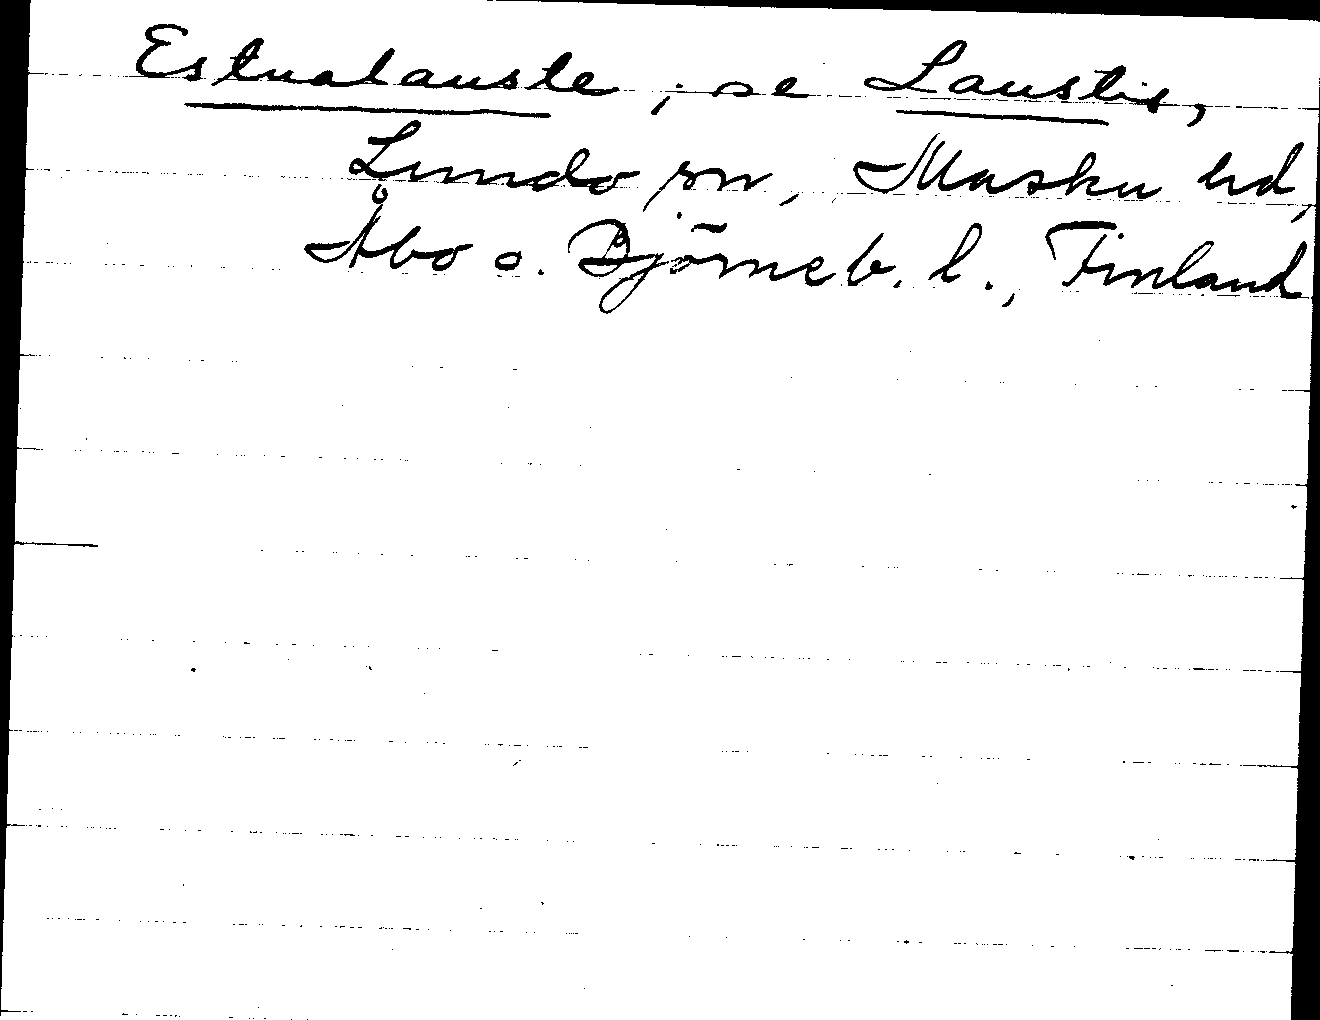 Estnalauste, se Laustis,
Lundo sn, Masku hd,
Åbo o. Björneb. l., Finland